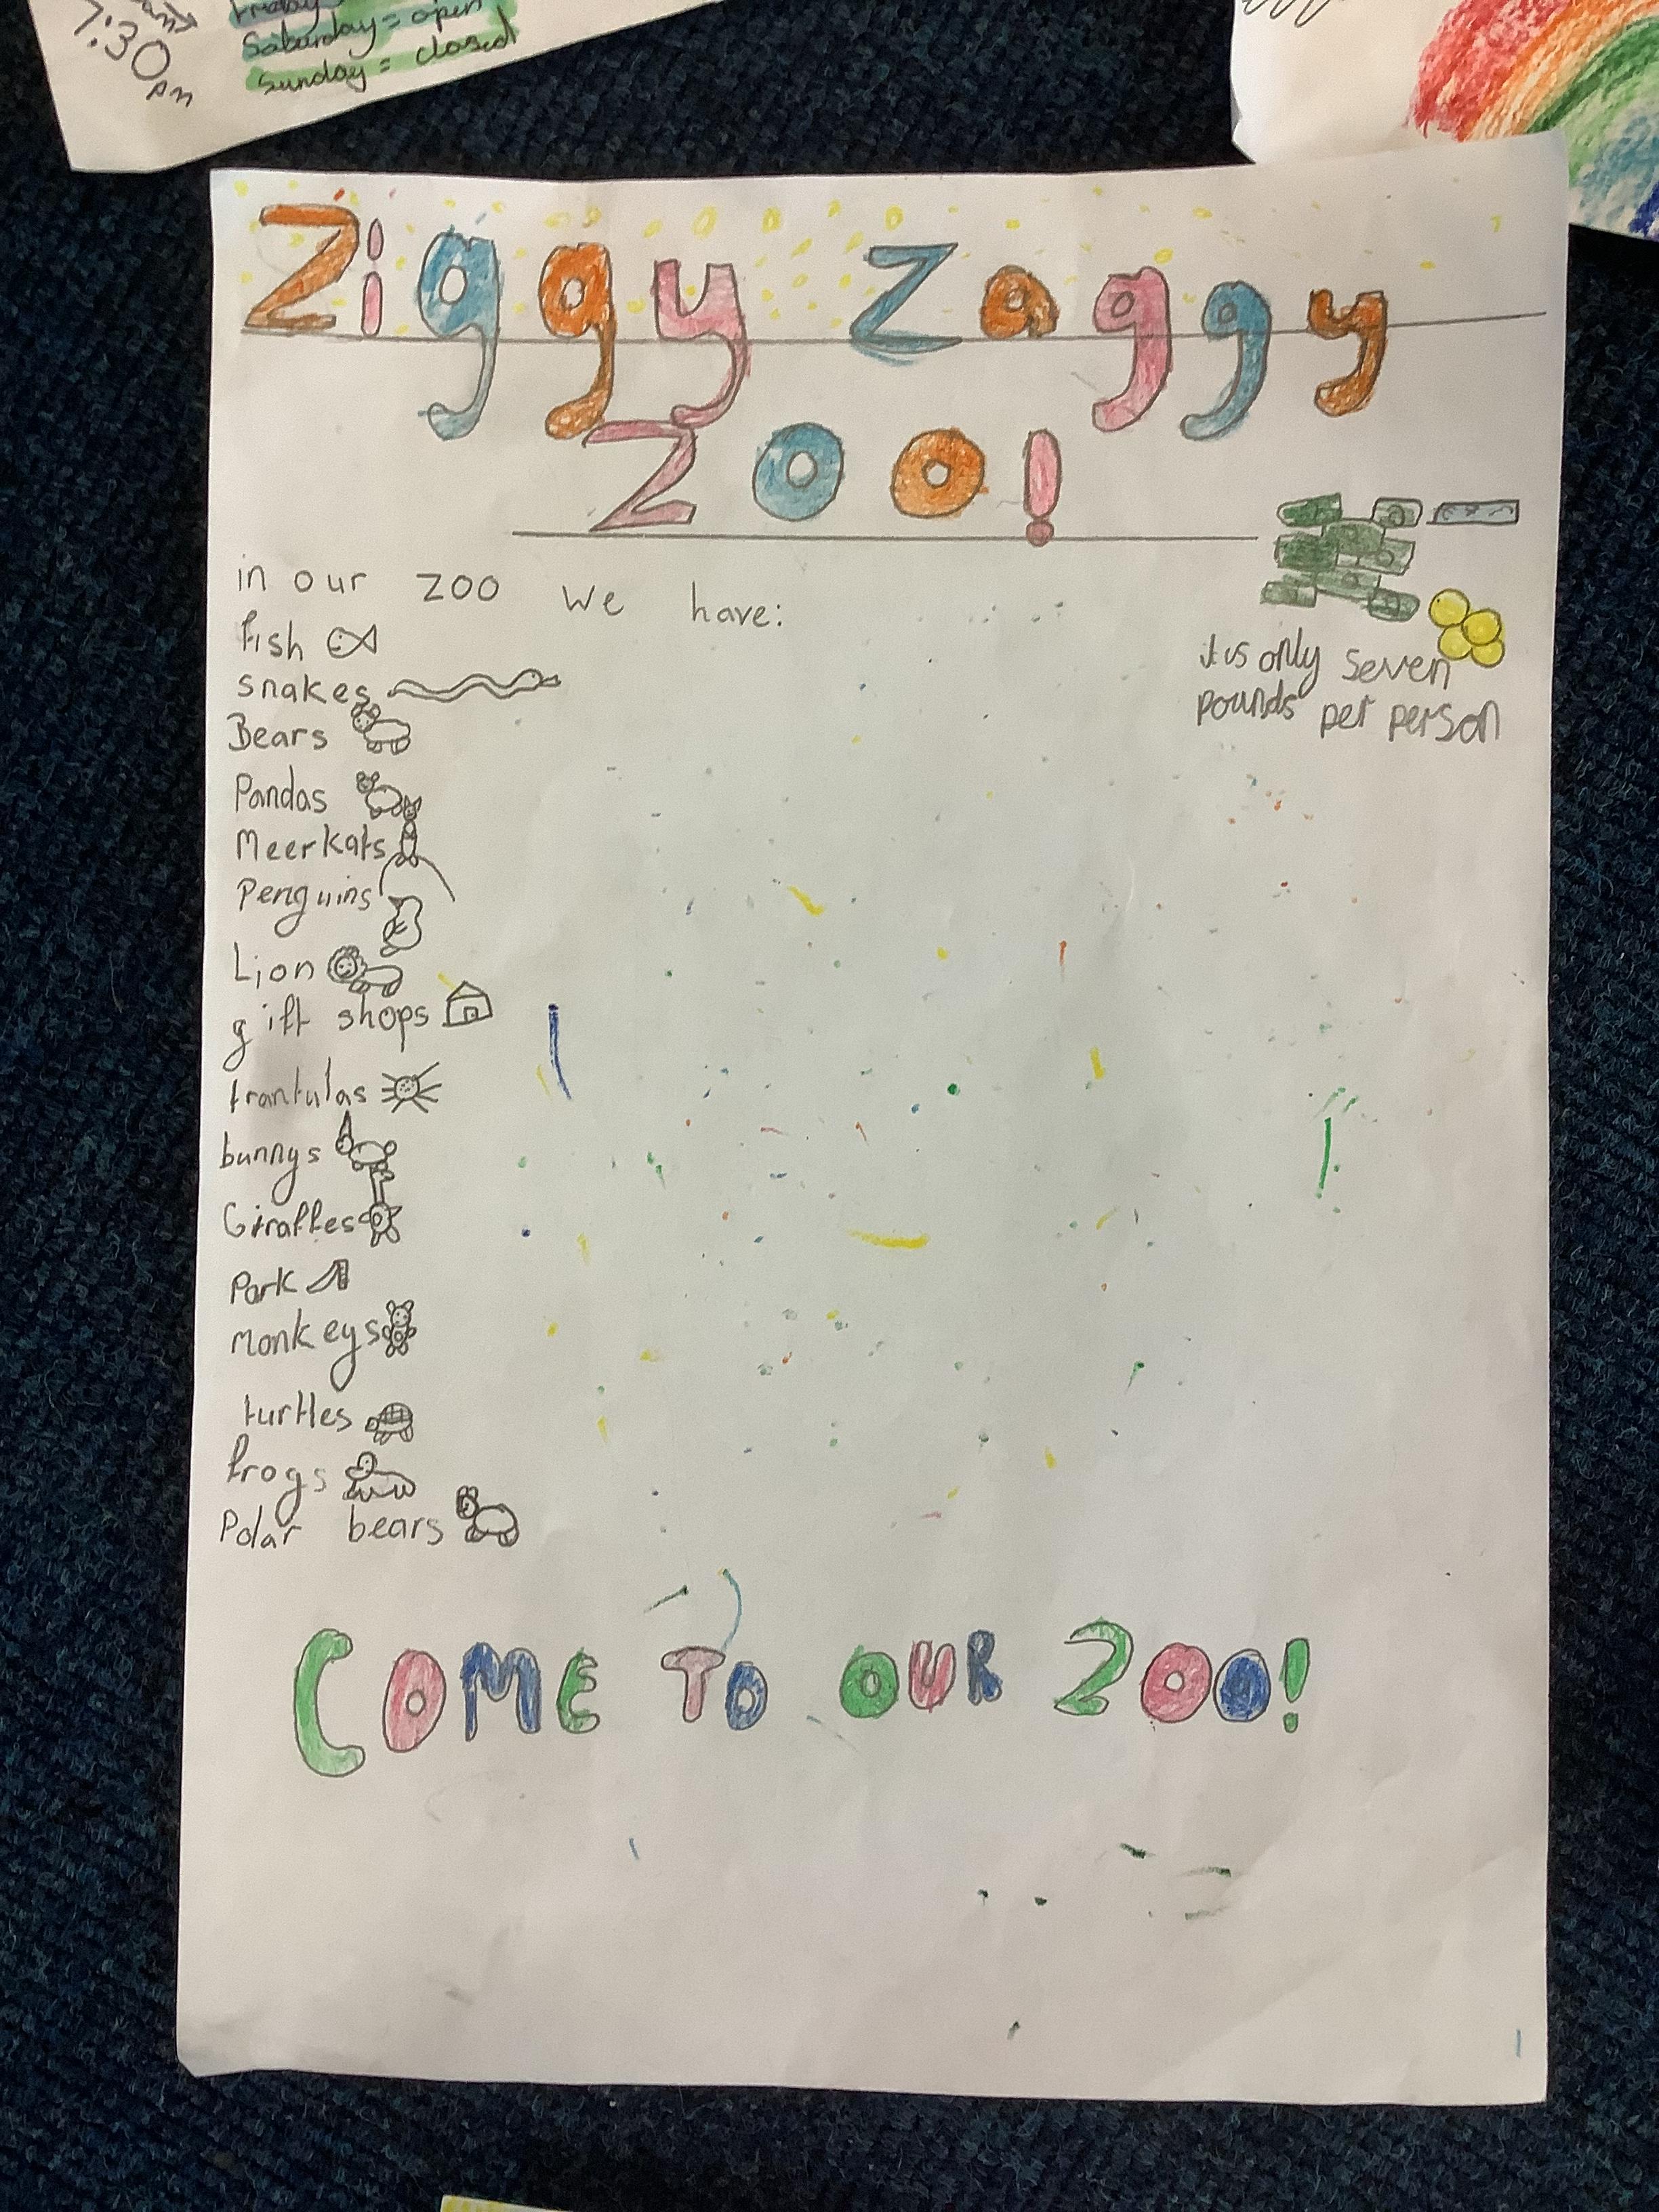 7:30
Am
Friday
Saturday = open
Sunday = closed
Ziggy Zaggy
Zoo!
in our zoo we have:
fish
snakes
Bears
Pandas
Meerkats
Penguins
Lion
gift shops
trantulas
bunnys
Giraffes
Park
monkeys
turtles
frogs
Polar bears
it is only seven
pounds per person
COME TO OUR ZOO!